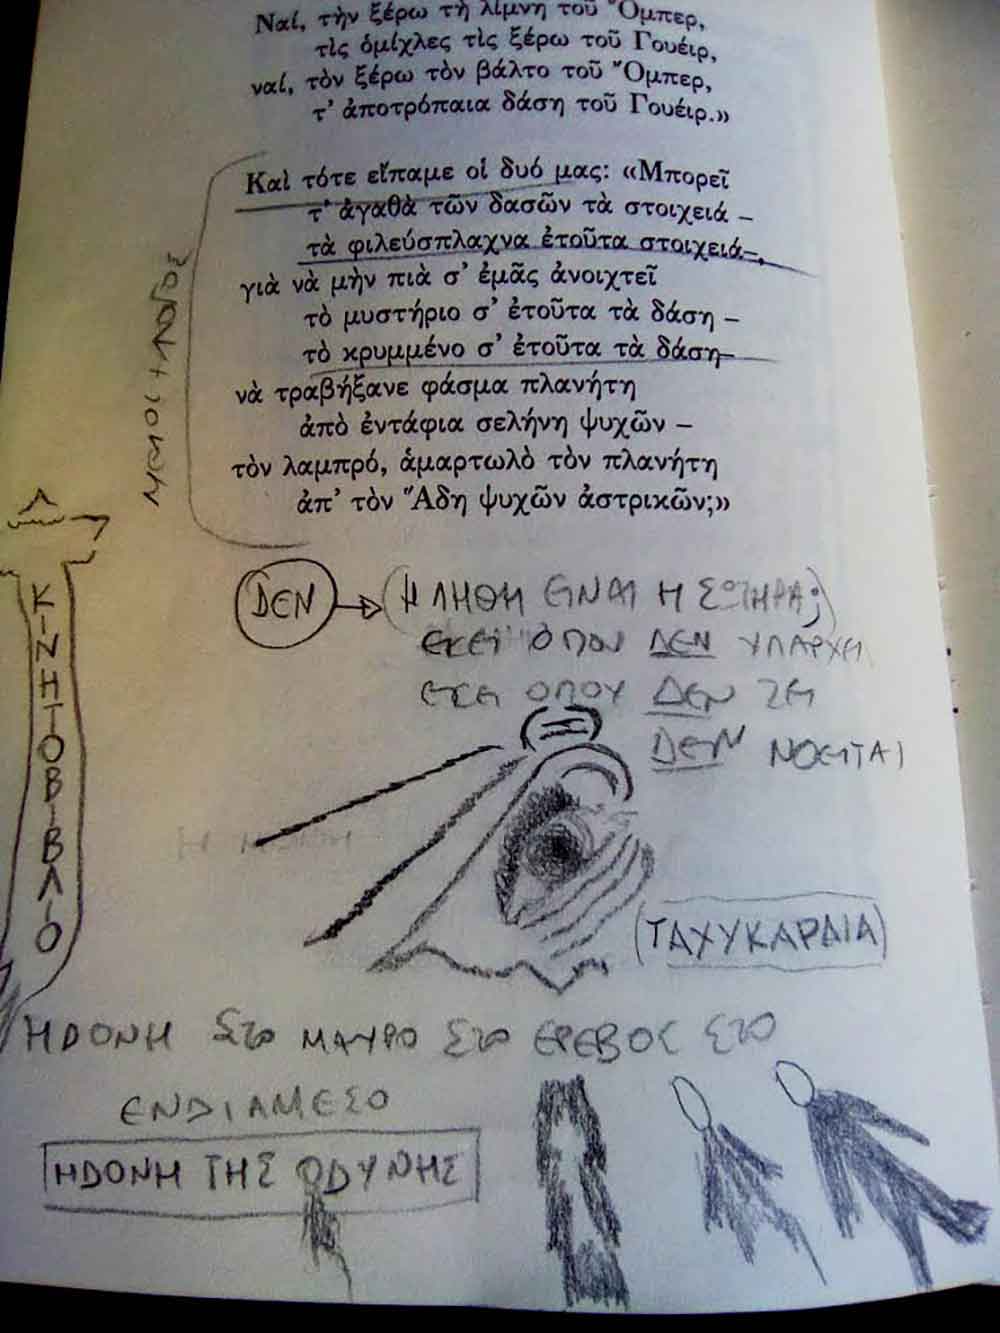 Ναί, τὴν ξέρω τὴ λίμνη τοῦ Ὄμπερ,
τὶς ὁμίχλες τὶς ξέρω τοῦ Γουέιρ,
ναί, τὸν ξέρω τὸν βάλτο τοῦ Ὄμπερ,
τ' ἀποτρόπαια δάση τοῦ Γουέιρ.»
Καὶ τότε εἴπαμε οἱ δυό μας: «Μπορεῖ
τ' ἀγαθὰ τῶν δασῶν τὰ στοιχειά –
τὰ φιλεύσπλαχνα ἐτοῦτα στοιχειά –,
γιὰ νὰ μὴν πιὰ σ' ἐμᾶς ἀνοιχτεῖ
τὸ μυστήριο σ' ἐτοῦτα τὰ δάση –
τὸ κρυμμένο σ' ἐτοῦτα τὰ δάση –
νὰ τραβήξανε φάσμα πλανήτη
ἀπὸ ἐντάφια σελήνη ψυχῶν –
τὸν λαμπρό, ἁμαρτωλὸ τὸν πλανήτη
ἀπ' τὸν Ἅδη ψυχῶν ἀστρικῶν;»
ΔΕΝ → (Η ΛΗΘΗ ΕΙΝΑΙ Η ΣΩΤΗΡΑ;)
ΕΚΕΙ ΟΠΟΥ ΔΕΝ ΥΠΑΡΧΕΙ
ΕΚΕΙ ΟΠΟΥ ΔΕΝ ΖΕΙ
ΔΕΝ ΝΟΕΙΤΑΙ
ΚΙΝΗΤΟΒΙΒΛΙΟ
(ΤΑΧΥΚΑΡΔΙΑ)
ΗΔΟΝΗ ΣΤΟ ΜΑΥΡΟ ΣΤΟ ΕΡΕΒΟΣ ΣΤΟ
ΕΝΔΙΑΜΕΣΟ
ΗΔΟΝΗ ΤΗΣ ΟΔΥΝΗΣ